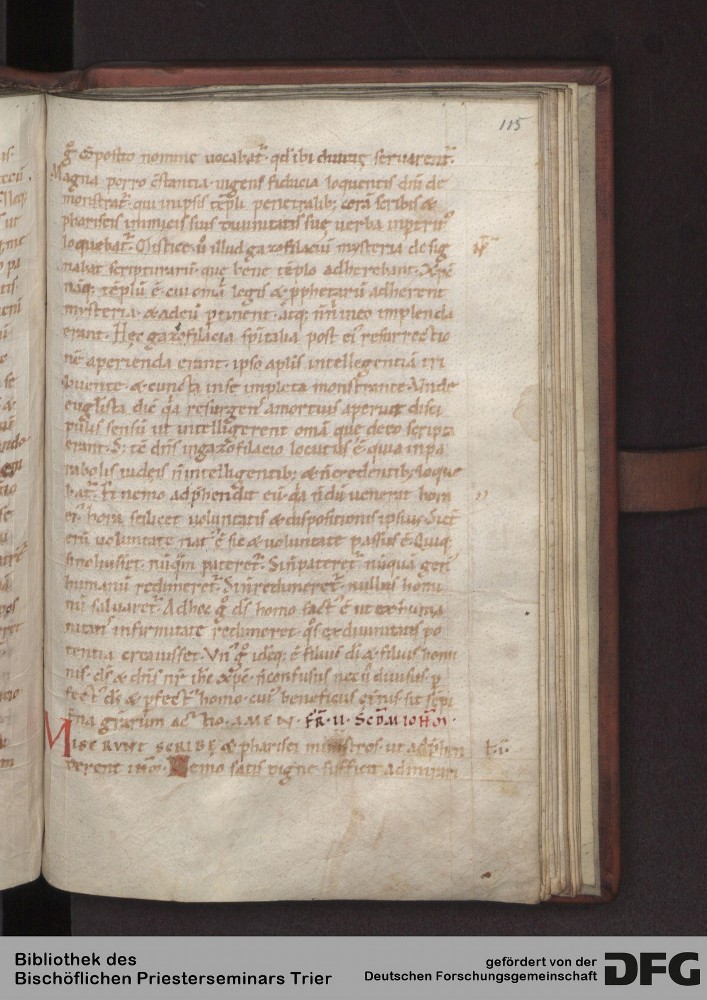 115
g̊ cōposito nomine uocabat᷑. qd ibi diuitię seruarent᷑.
Magna porro cstantia. uigens fiducia loquentis dn̄i de
monstrat᷑. qui inipsis tēpli penetralib; corā scribis &
phariseis inimicis suis diuinitatis suę uerba
loquebat᷑. Mistice ū illud gazofilaciū mysteria desig
nabat scripturarū. que bene tēplo adherebant. Xp̄c
nāq; tēplū ē. cui om̄a legis & p̄phetarū adherent
mysteria. & adeū ptinent. atq; ineo implenda
erant. Hęc gazofilacia spiritalia post ei' resurrectio
nē aperienda erant. ipso aplis intellegentiā tri
buente. & cuncta inse impleta monstrante. Vnde
euglista dic̄ qa resurgens amortuis aperuit disci
pulis sensū ut intelligerent om̄a que deeo scripta
erant. S; tc̄ dn̄s ingazofilacio locutus ē. quia inpa
rabolis iudeis n̄ intelligentib; & n̄ credentib; loque
bat᷑. Et nemo adp̄hendit eū. qa n̄dū uenerat hora
ei'. hora scilicet uoluntatis & dispositionis ipsius. Sicut
enī uoluntate nat' ē sic & uoluntate passus ē. Qui
sinoluisset. nūqm pateret᷑. Sin̄ pateret᷑. nūquā gen'
humanū redimeret᷑. Sin̄ redimeret᷑. nullus homi
nū saluaret᷑. Adhec g̊ ds homo fact' ē ut exhuma
nitatis infirmitate redimeret. qs exdiuinitatis po
tentia creauisset. Vn' g̊ idēq; ē filius di & filius homi
nis. ds & dn̄s nr̄ ihc xp̄c. n̄ confusus nec diuisus. p
fect' ds & pfect' homo. cui' beneficiis sit sempi
t̄na gr̄arum actio. AMEN. FR̄. II. SCD̄M IOH̄M.
MISERVNT SCRIBĘ & pharisei ministros. ut adp̄hen
derent ih̄m. Nemo satis digne sufficit admirari
Bibliothek des
Bischöflichen Priesterseminars Trier
gefördert von der
Deutschen Forschungsgemeinschaft
DFG